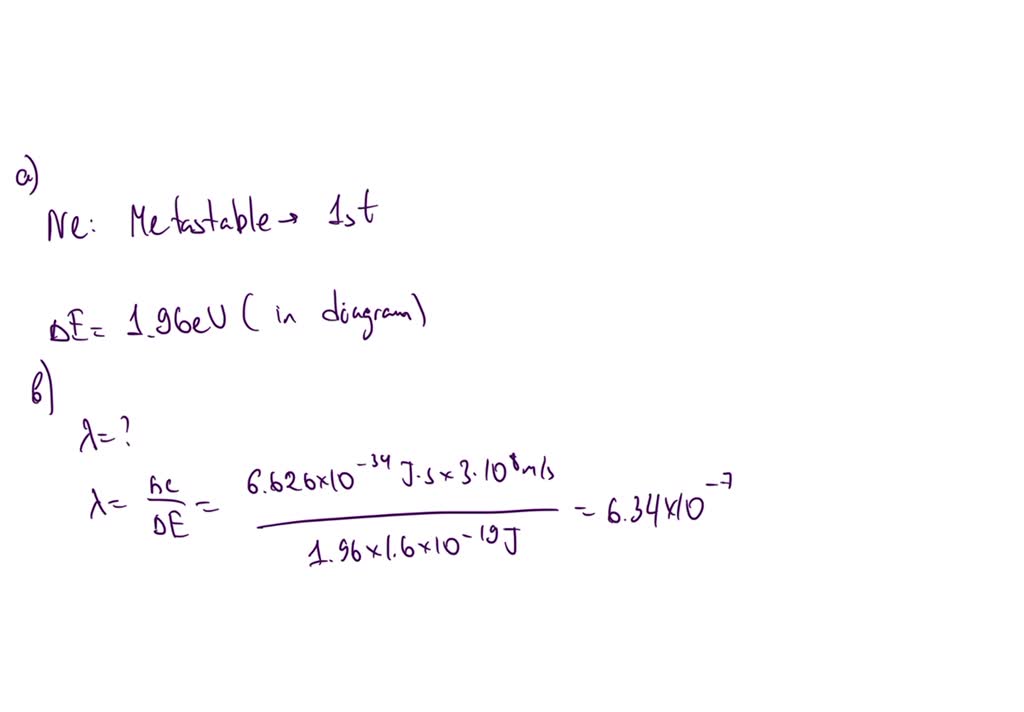 a)
Ne: Metastable → 1st
ΔE = 1.96eV ( in diagram)
b)
λ = ?
λ = hc/ΔE = 6.626×10⁻³⁴ J·s × 3·10⁸ m/s / 1.96×1.6×10⁻¹⁹ J = 6.34×10⁻⁷